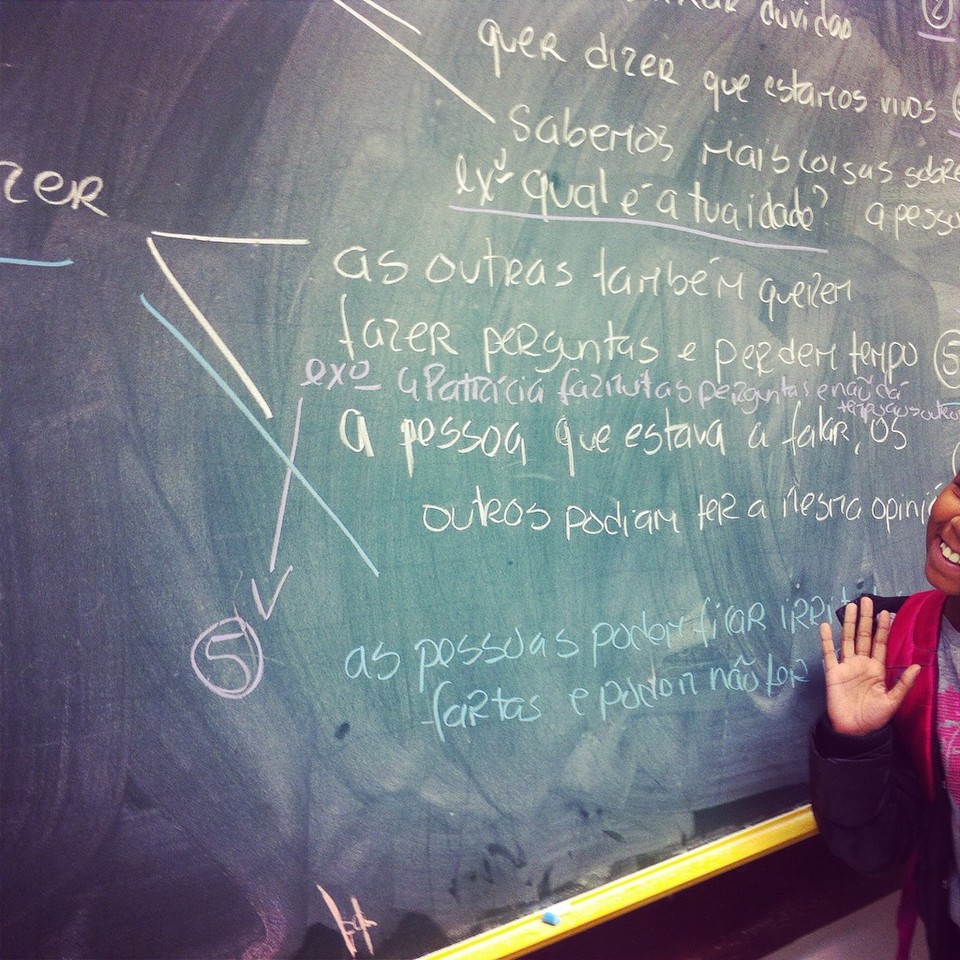 dúvidas
2
quer dizer que estamos vivos
Sabemos mais coisas sobre
exº qual é a tua idade? a pesso
zer
as outras também querem
fazer perguntas e perdem tempo 5
exº a Patrícia faz muitas perguntas e não dá
tempo aos outros
a pessoa que estava a falar, os
outros podiam ter a mesma opiniã
5
as pessoas podem ficar irrit
fartas e podem não ter